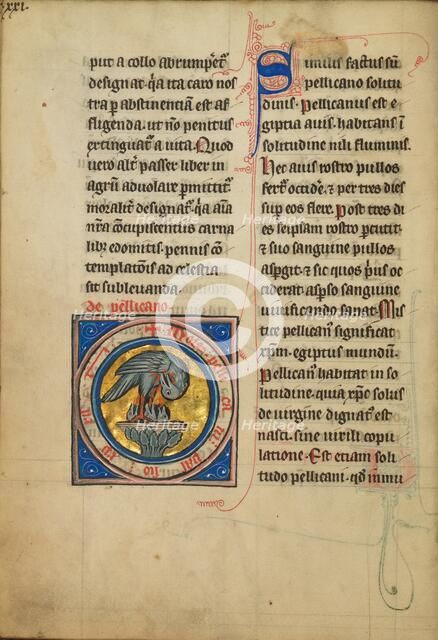 xxxi.
put a collo abrumpet᷑
designat᷑ q̇a ita caro nos
tra p abstinentiam est af
fligenda. ut nō penitus
extinguat᷑ a uita. Quod
uero alt᷑ passer liber in
agrū aduolare pmittit᷑
moralit᷑ designat᷑. q̇a aīa
nr̄a cōcupiscentiis carna
libꝫ edomitis. pennis cō
templationis ad celestia
sit subleuanda.
de pellicano
Similis factus sū
pellicano solitu
dinis. Pellicanus est e
giptia auis. habitans ī
solitudine nili fluminis.
Hec auis rostro pullos
fert᷑ occidere. & per tres dies
sup eos flere. Post tres di
es seipsam rostro pcutit.
& suo sanguine pullos
asp̱git. & sic quos p̱us oc
ciderat aspso sanguine
uiuificando sanat. Mis
tice pellican᷒ significat
xp̄m. egiptus mundū.
Pellican᷒ habitat in so
litudine. quia xp̄c solus
de uirgine dignat᷒ est
nasci. sine uirili copu
latione. Est etiam soli
tudo pellicani. qd̓ inmu
Heritage
Heritage
Heritage
Heritage
Heritage
Heritage